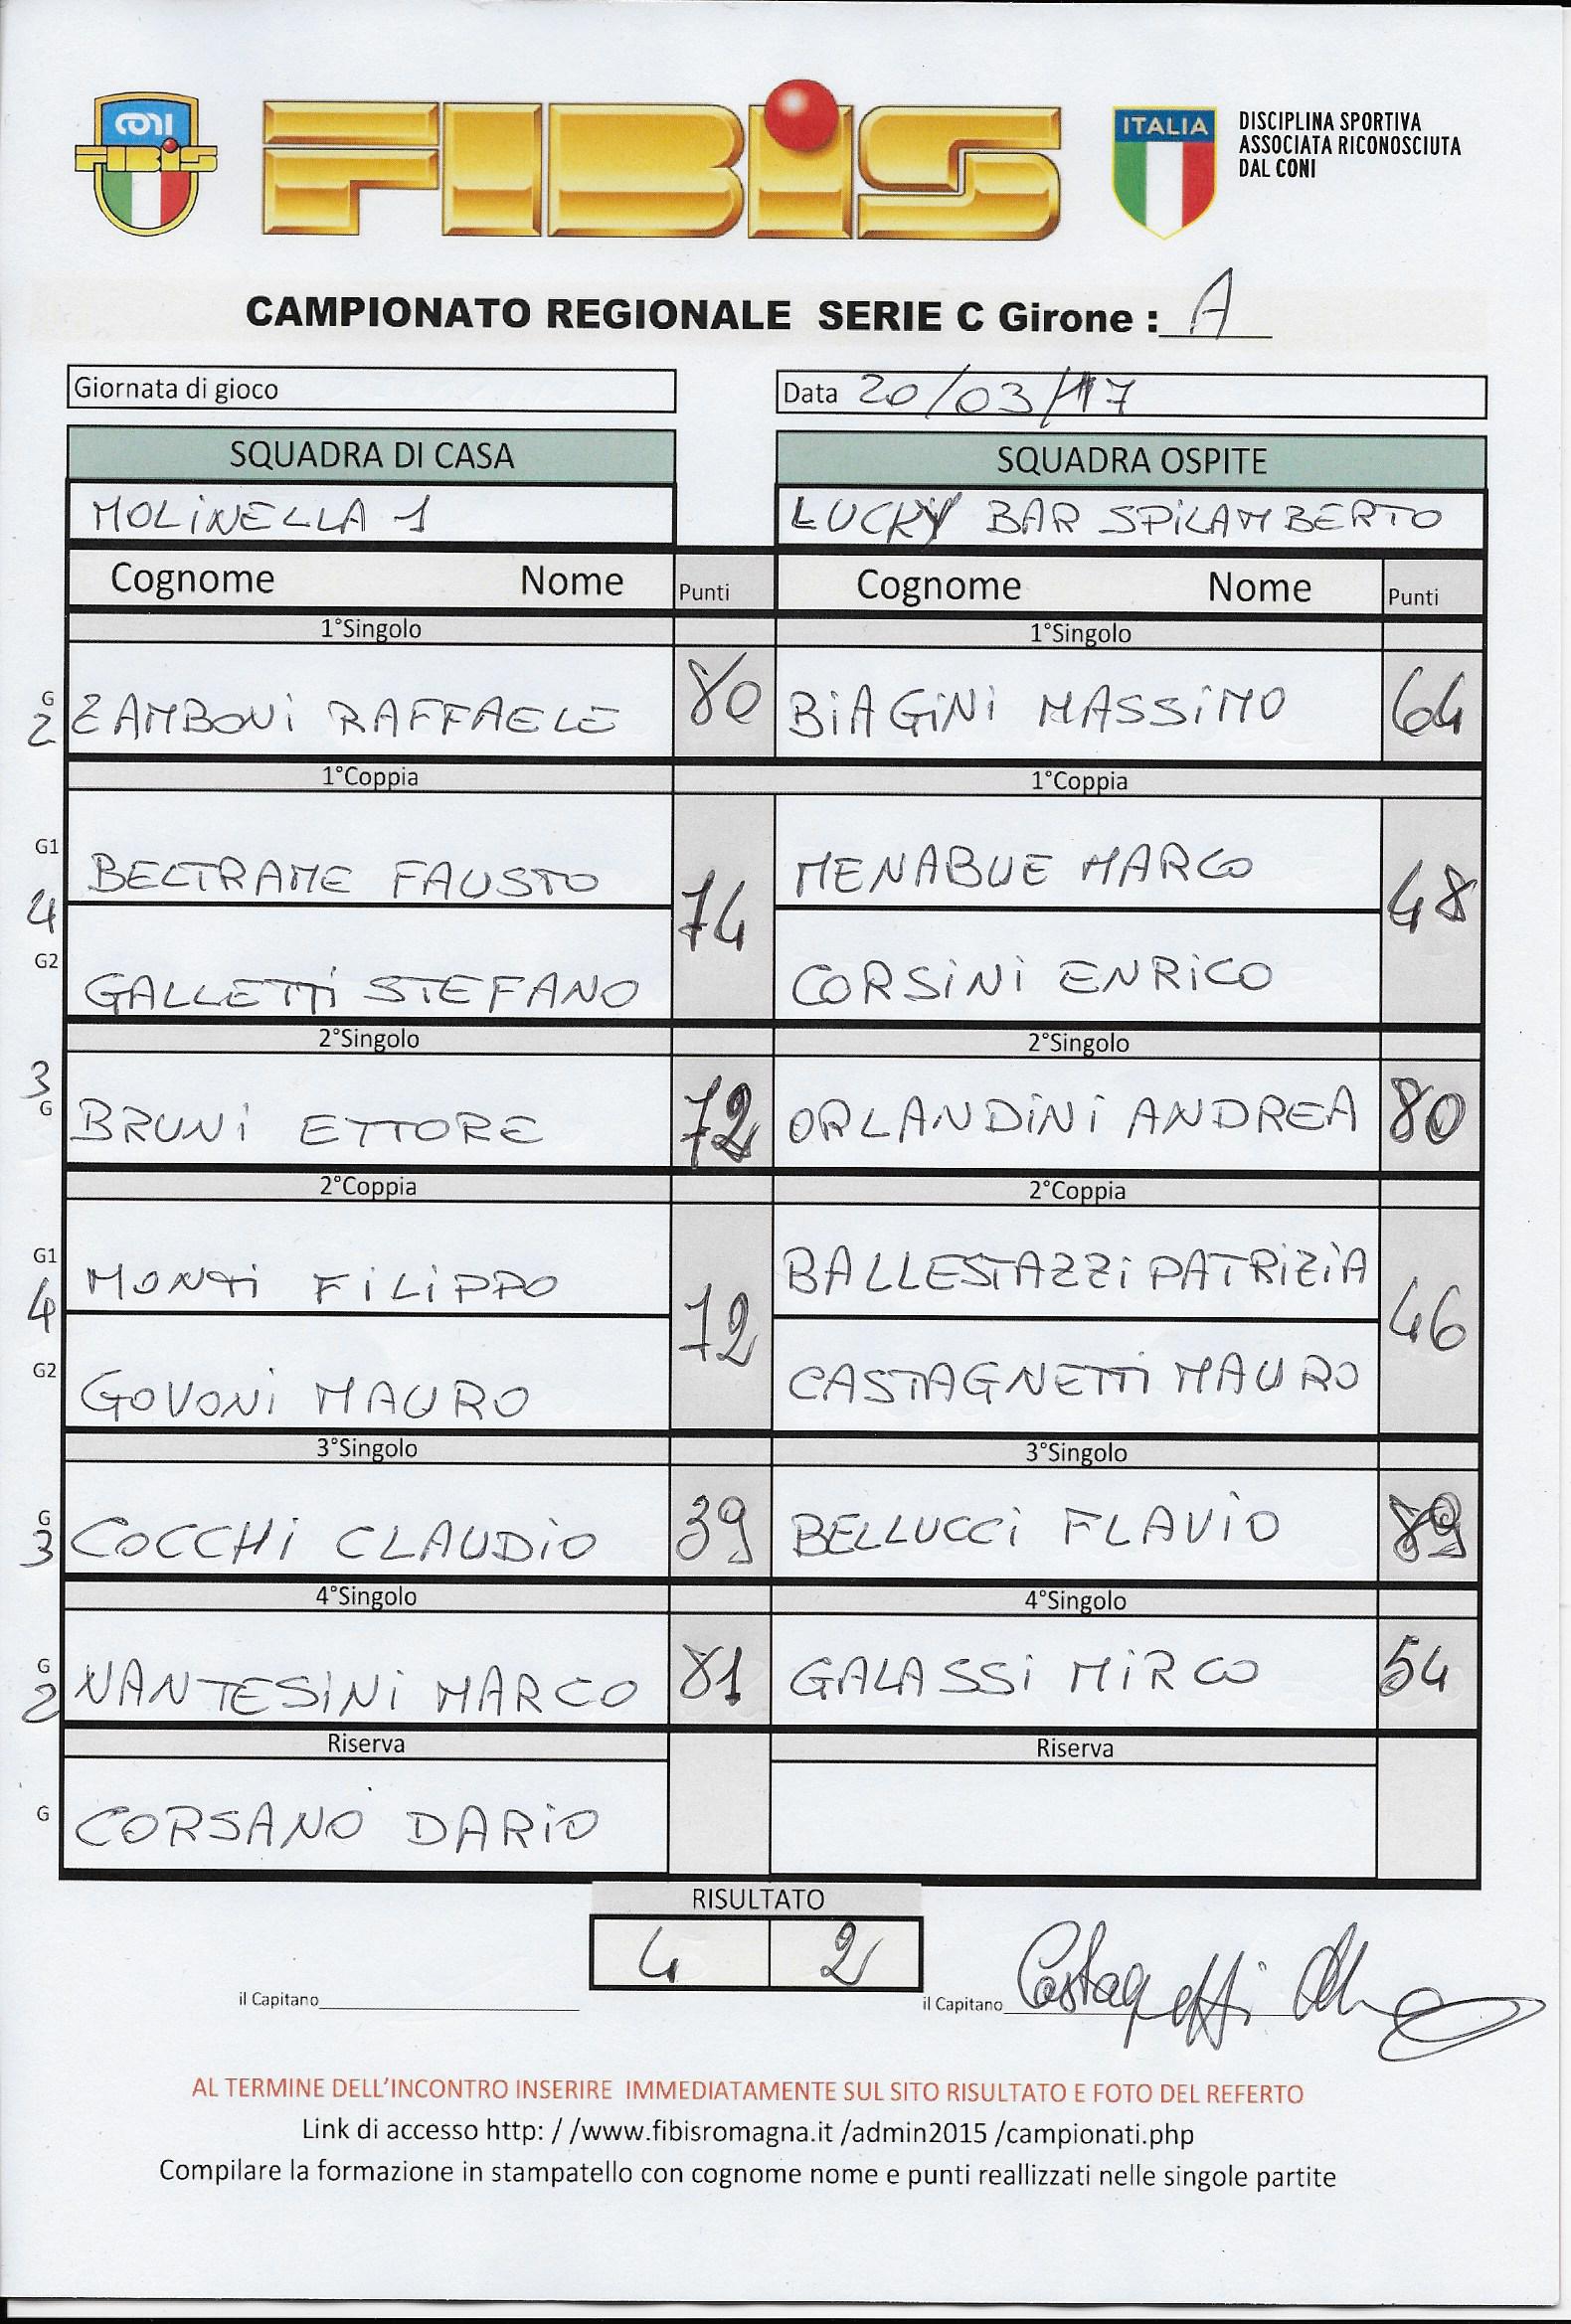 CONI
FIBIS
FIBIS
ITALIA
DISCIPLINA SPORTIVA
ASSOCIATA RICONOSCIUTA
DAL CONI
CAMPIONATO REGIONALE SERIE C Girone : A
Giornata di gioco
Data 20/03/17
SQUADRA DI CASA SQUADRA OSPITE
MOLINELLA 1 LUCKY BAR SPILAMBERTO
Cognome Nome Punti Cognome Nome Punti
1°Singolo 1°Singolo
G
2 ZAMBONI RAFFAELE 80 BIAGINI MASSIMO 64
1°Coppia 1°Coppia
G1 BELTRAME FAUSTO MENABUE MARCO
4 74 48
G2 GALLETTI STEFANO CORSINI ENRICO
2°Singolo 2°Singolo
3
G BRUNI ETTORE 72 ORLANDINI ANDREA 80
2°Coppia 2°Coppia
G1 MONTI FILIPPO BALLESTAZZI PATRIZIA
4 72 46
G2 GOVONI MAURO CASTAGNETTI MAURO
3°Singolo 3°Singolo
G
3 COCCHI CLAUDIO 39 BELLUCCI FLAVIO 89
4°Singolo 4°Singolo
G
2 NANTESINI MARCO 81 GALASSI MIRCO 54
Riserva Riserva
G CORSANO DARIO
RISULTATO
4 2
il Capitano
il Capitano Castagnetti
AL TERMINE DELL'INCONTRO INSERIRE IMMEDIATAMENTE SUL SITO RISULTATO E FOTO DEL REFERTO
Link di accesso http: / /www.fibisromagna.it /admin2015 /campionati.php
Compilare la formazione in stampatello con cognome nome e punti reallizzati nelle singole partite